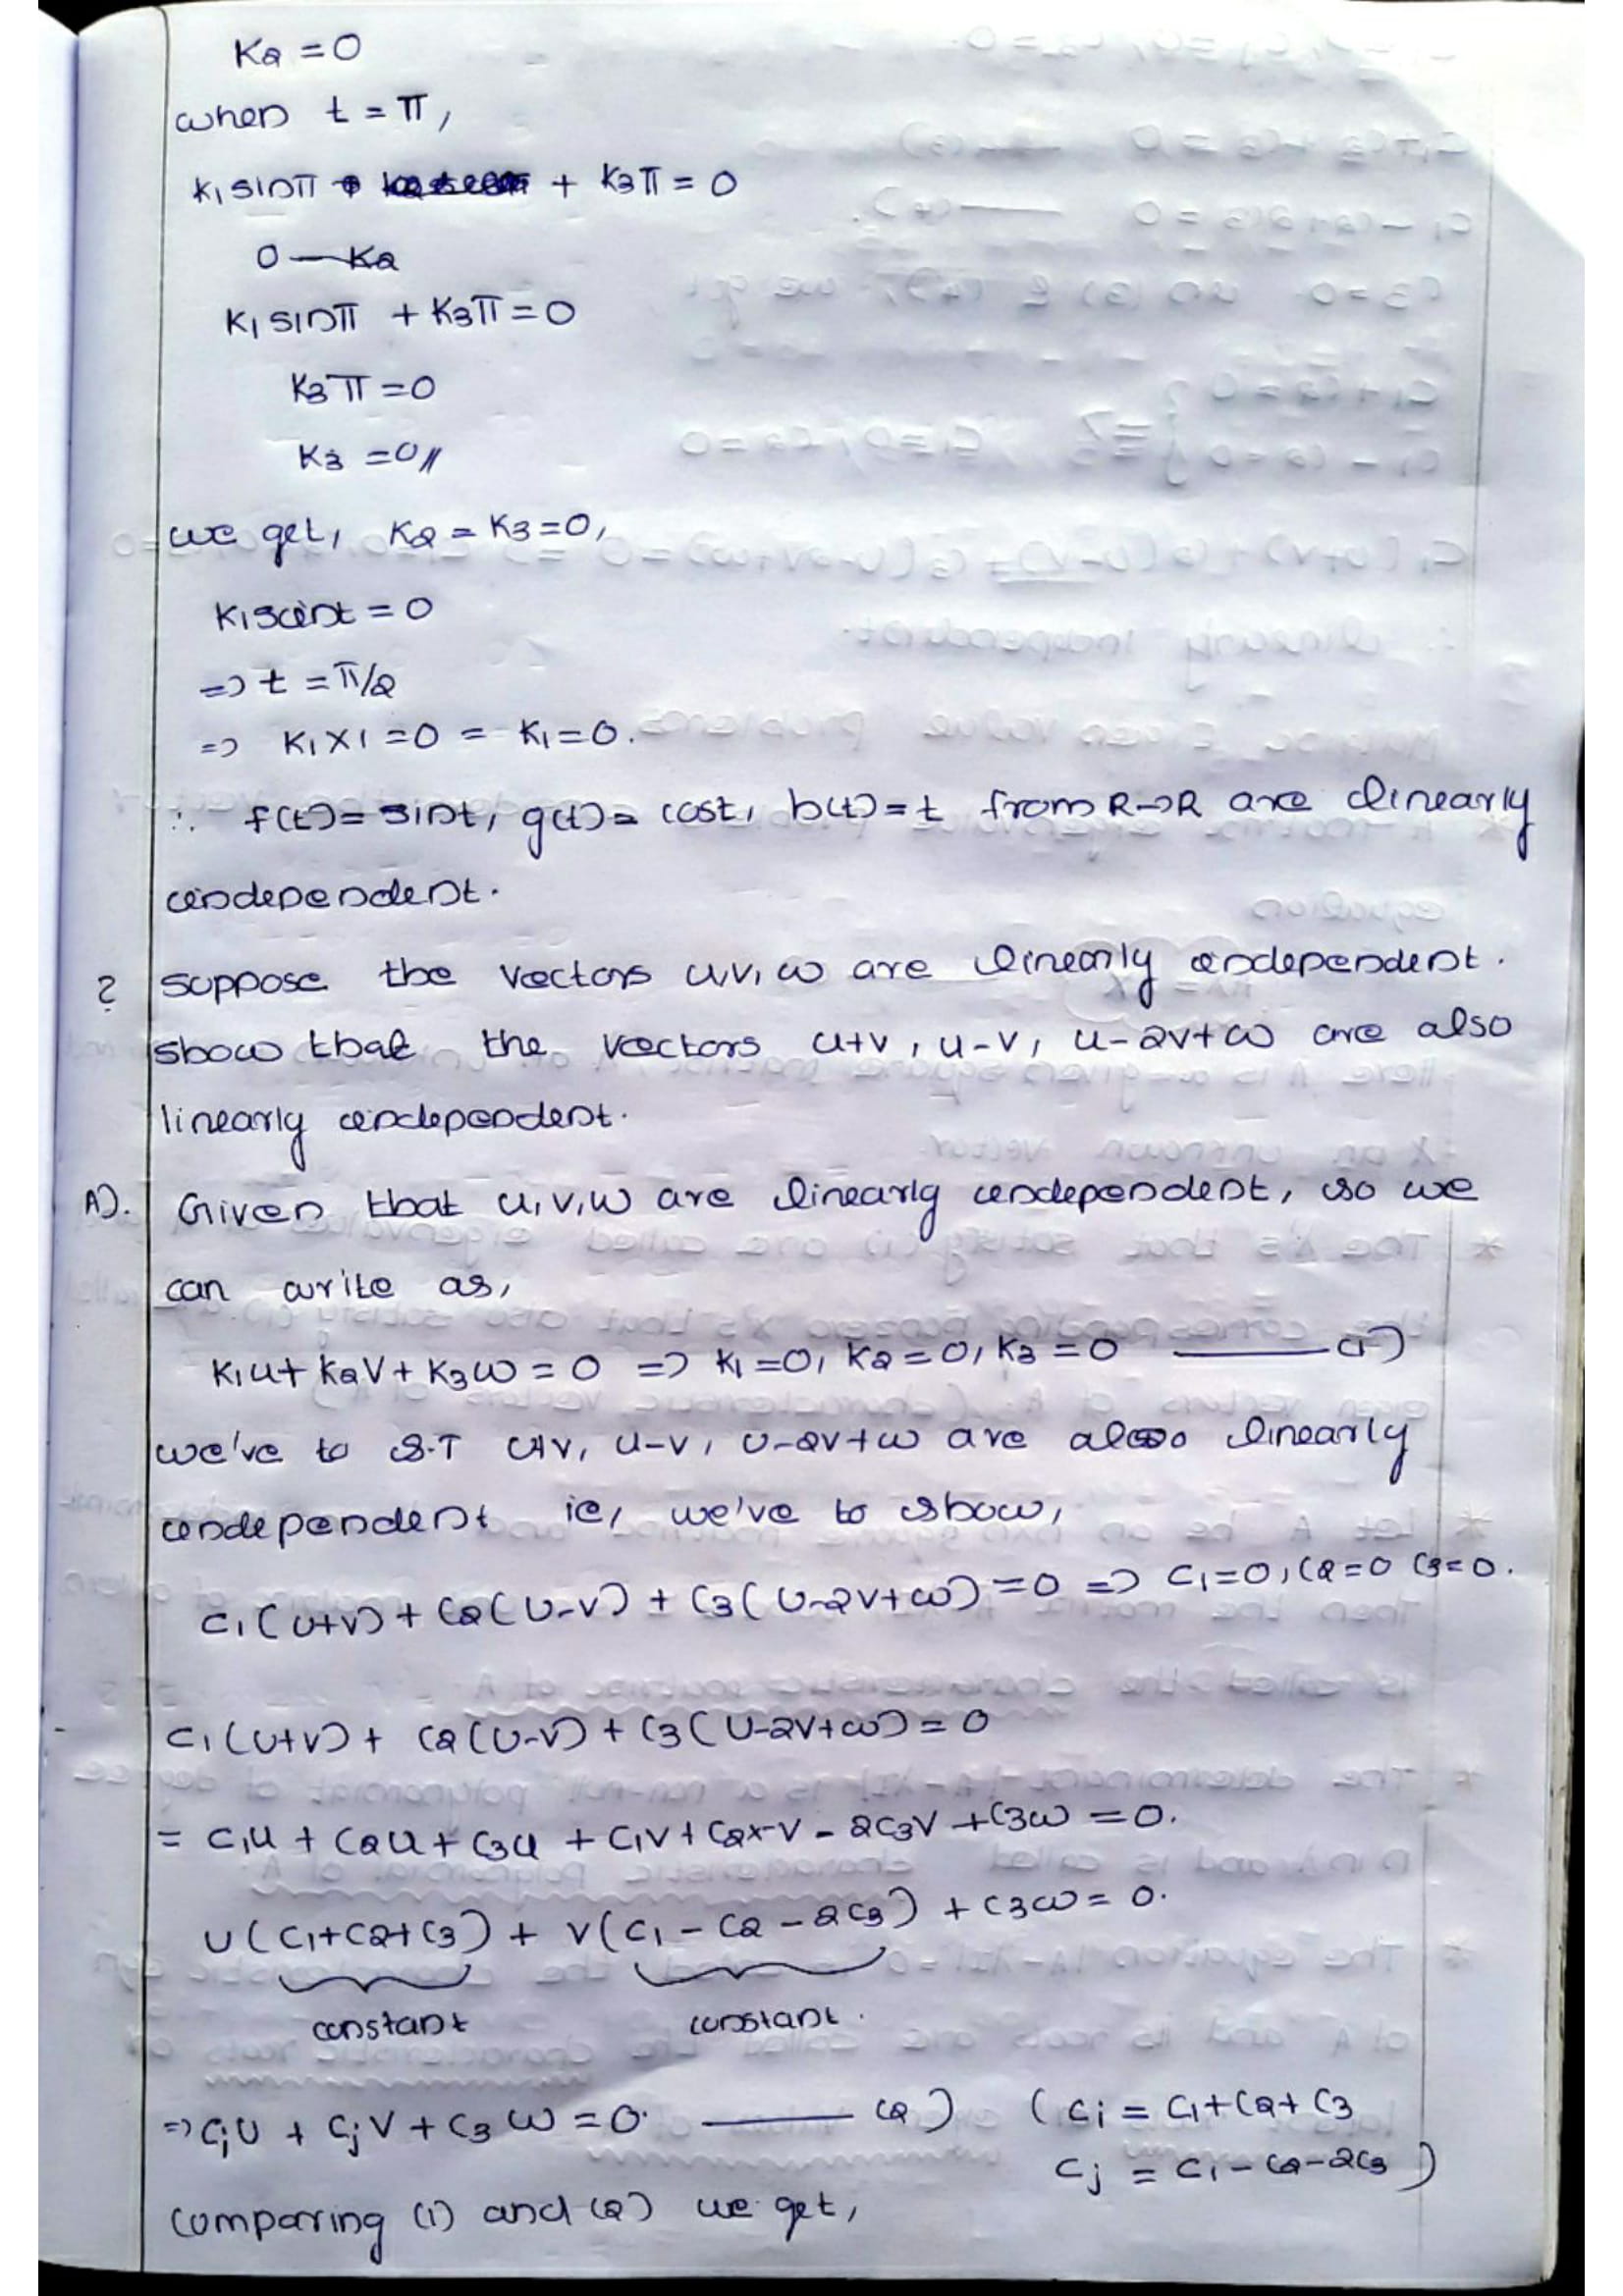 K2 = 0
when t = π,
K1 sinπ + K3π = 0
0 — K2
K1 sinπ + K3π = 0
K3π = 0
K3 = 0 //
we get, K2 = K3 = 0,
K1 sint = 0
=> t = π/2
=> K1 × 1 = 0 = K1 = 0.
∴ f(t) = sint, g(t) = cost, h(t) = t from R→R are linearly
independent.
? suppose the vectors u,v,w are linearly independent.
show that the vectors u+v, u-v, u-2v+w are also
linearly independent.
A). Given that u,v,w are linearly independent, so we
can write as,
K1u + K2v + K3w = 0 => K1 = 0, K2 = 0, K3 = 0 —— (1)
we've to S.T u+v, u-v, u-2v+w are also linearly
independent ie, we've to show,
C1(u+v) + C2(u-v) + C3(u-2v+w) = 0 => C1=0, C2=0 C3=0.
C1(u+v) + C2(u-v) + C3(u-2v+w) = 0
= C1u + C2u + C3u + C1v + C2x-v - 2C3v + C3w = 0.
u(C1+C2+C3) + v(C1 - C2 - 2C3) + C3w = 0.
constant constant.
=> Ciu + Cjv + C3w = 0. —— (2) (Ci = C1+C2+C3
Cj = C1-C2-2C3)
comparing (1) and (2) we get,